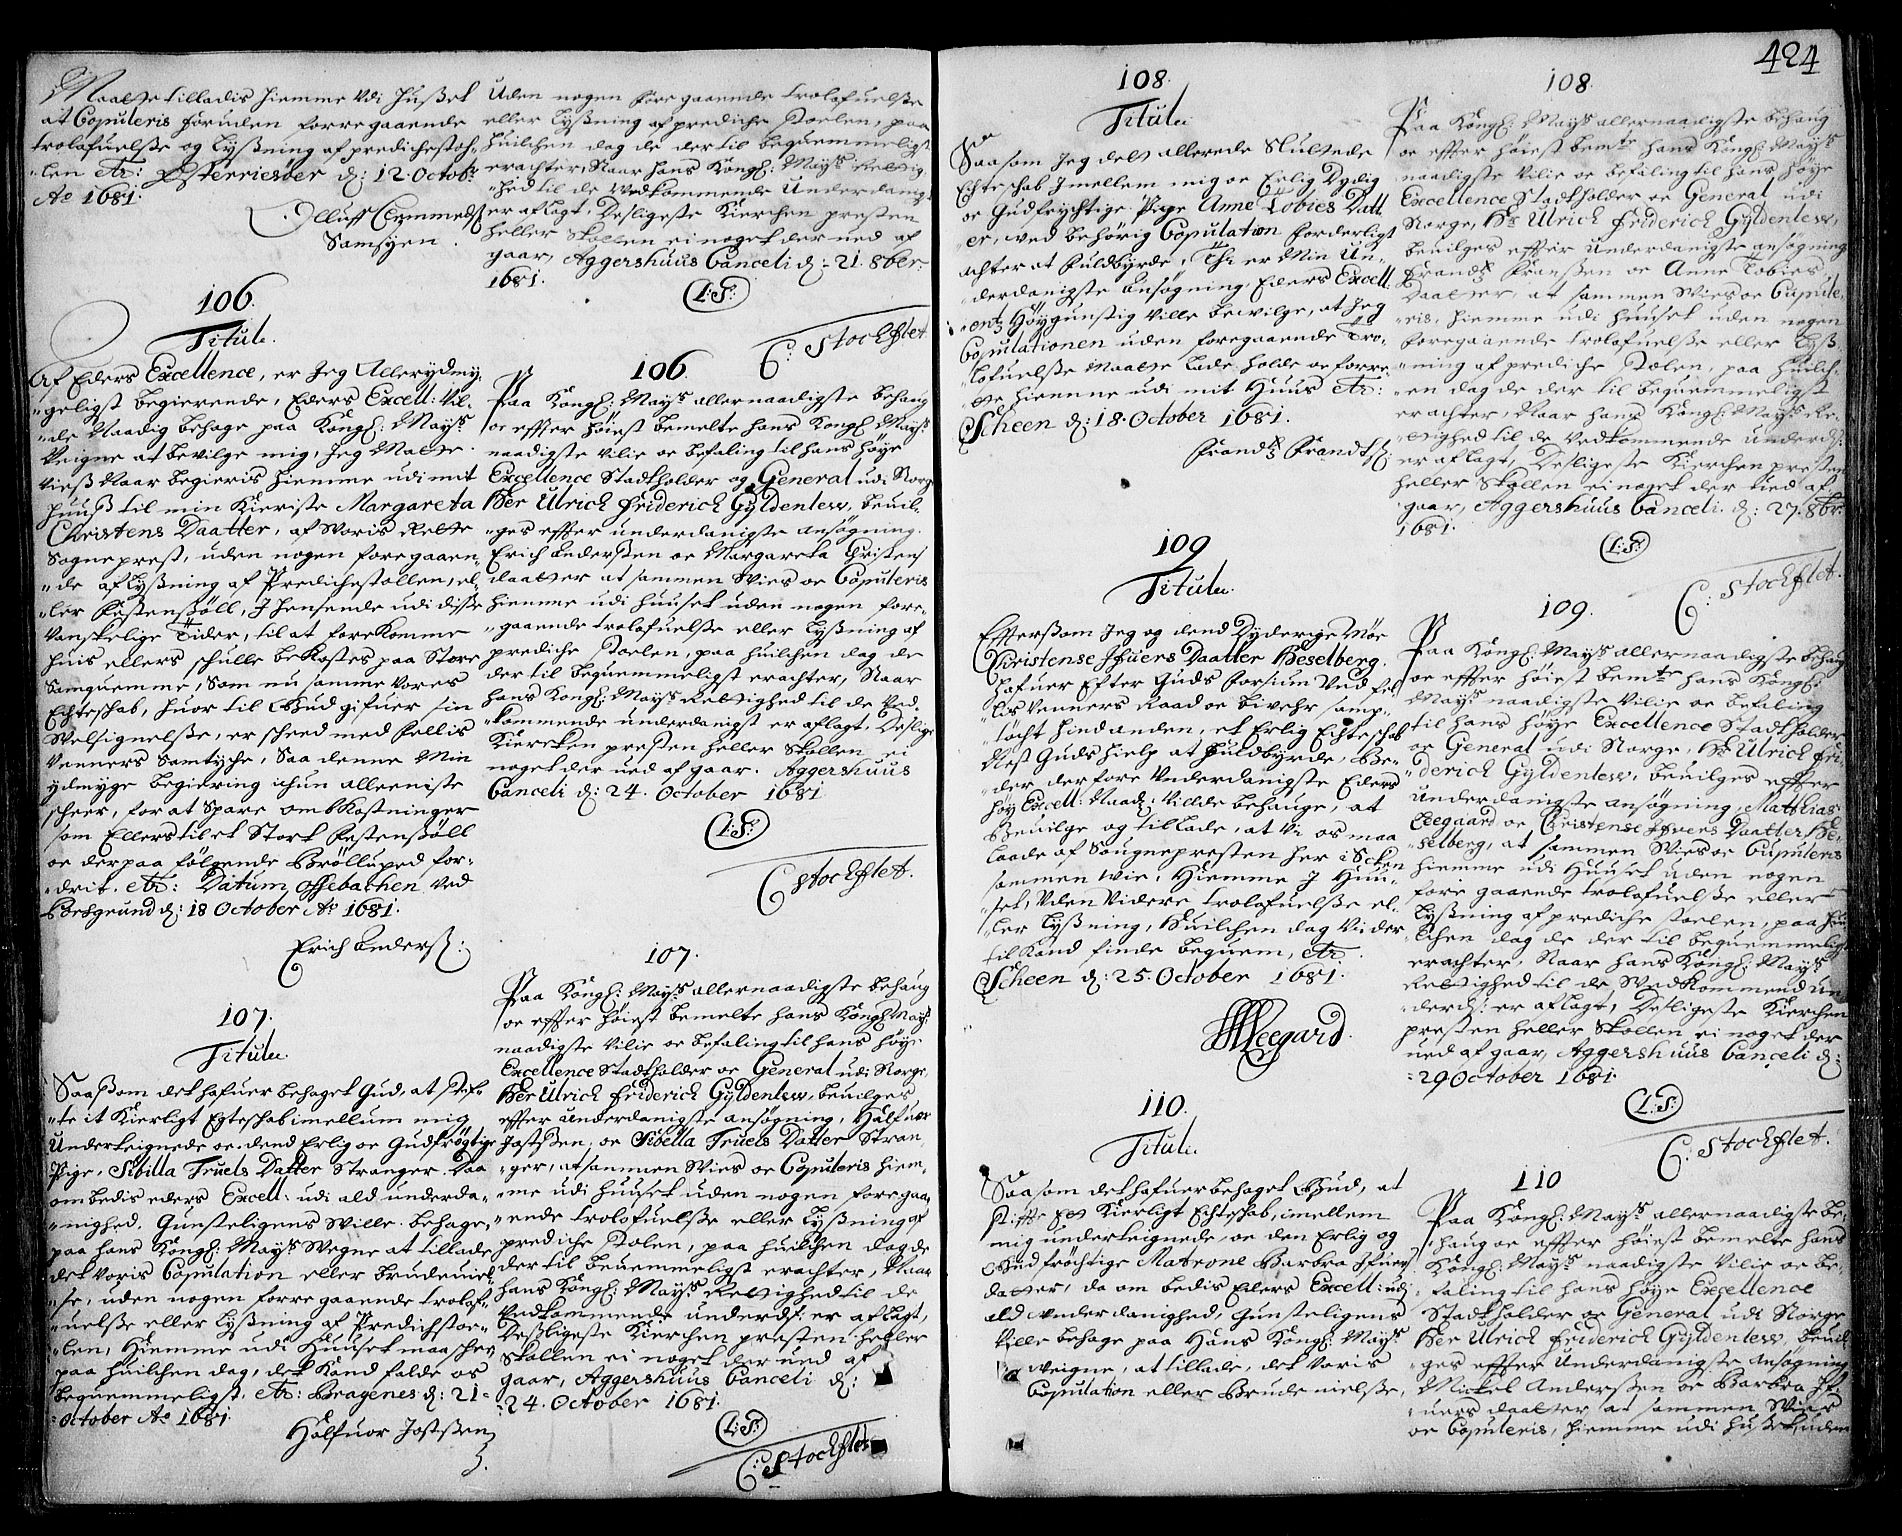 Maatte tilladis hiemme Udi Hußet
at Copuleris foruden forregaaende
trolofuelsße og Lysßning af predichestoh-
-len etc: Østerriesöer d: 12. Octobr
Ao 1681.
Olluff Clemmedß
Samsyen.
106.
Titul.
Af Eders Excellence, er Jeg Allerydmy,
-geligst begierende, Eders Excell: Vil-
-de Naadig behage paa Kongl: Mayts
Veigne at bevilge mig, Jeg Maatte
Vieß Naar begieris hiemme udi mit
Huuß til min Kieriste Margareta
Christens Daatter, af Voris Rette
Sogneprest, uden nogen foregaaen-
-de aflysßning af Predichestollen, el-
-ler festensßöll, J hensende udi disse
Vanskelige Tider, til at forekomme
huis ellers schulle bekostes paa Store
Samquemme, Som nu samme Vores
Echteschab, huor til Gud gifuer sin
Velsignelsße, er scheed med felles
Venners Samtyche, Saa denne Min
ydmyge begiering ichun alleeniste
scheer, for at Spare om Kostninger
som Ellers til et Stort festensßöll
oc derpaa fölgende Bröllupsd for-
-drit. etc: Datum Offebachen Ved
Borsgrund d: 18 October Ao 1681.
Erich Anderß:
107.
Titul.
Saasßom det hafuer behaget Gud, at stif-
-te it Kierligt Egteschab imellum mig
Underteignede oc dend Erlig oc Gudfrögtige
Pige, Sibilla Truels Datter Stranger. Daa
ombedis eders Excell: udi ald underda-
-nighed, Gunsteligens Wille behage,
paa hans Kongl: Mayts Wegne at tillade
det Voris Copulation eller brudeviel-
-se, uden nogen forregaaende trolof-
-uelsße eller Lysßning af Predichstoe-
-len, Hiemme udi Huuset maa schee
paa huilchen dag, det Kand falde os
bequemmeligst. etc: Bragenes d: 21-
October Ao 1681.
Halfuor Jostsßen
Uden nogen fore gaaende trolofuelsße
eller Lysßning af prediche stoelen, paa
huilchen dag de der til bequemmeligst
erachter, Naar hans Kongl: Mayts Rettig-
-hed til de Vedkommende Underdanigst
er aflagt, Desligeste Kierchen presten
heller Skollen ei noget der ved af
gaar, Aggershuus Canceli d: 21. 8ber.
1681.
L:S:
C: Stochflet.
106
Paa Kongl: Mayts allernaadigste behaug
oc effter höiest bemelte hans Kongl Mayts
naadigste Vilie oc befaling til hans höye
Excellence Stadtholder og General udi Norge
Her Ulrich friderich Gyldenlew, beuil-
-ges effter underdanigste ansögning.
Erich Andersßen oc Margareta Christens
daatter at sammen Vies oc Copuleris
hiemme udi huuset uden nogen fore-
-gaaende trolofuelsße eller Lysßning af
prediche stoelen, paa huilchen dag de
der til bequemmeligst erachter, Naar
hans Kongl: Mayts Rettighed til de Ved-
-kommende underdanigst er aflagt. Deslige
Kierchen presten heller Skollen ei
noget der ued af gaar. Aggershuus
Canceli d: 24. October 1681
L:S:
C Stochflet.
107.
Paa Kongl: Mayts allernaadigste behaug
oc effter höiest bemelte hans Kongl Mayts
naadigste Vilie oc befaling til hans höy-
Excellence Stadtholder oc General udi Norge,
Her Ulrich friderich Gyldenlew, beuilges
effter underdanigste ansögning, Halfuor
Jostsßen, oc Sibella Truels Datter Stran,
-ger, at sammen Vies oc Copuleris hiem-
-me udi huuset uden nogen foregaa
-ende trolofuelsße eller Lysßning af
prediche stolen, paa huilchen dag de
der til beuemmeligst erachter, Naar
hans Kongl: Mayts Rettighed til de
Vedkommende underds: er aflagt,
Desligeste Kierchen presten heller
Skollen ei noget der ued af
gaar, Aggershuus Canceli d:
-24. October 1681.
L:S:
C: Stochflet
424
108.
Titul.
Saasom Jeg dett allerede Sluttede
Echteschab Jmellem mig oc Erlig Dydig
oc Gudfrychtige Pige Anne Tobies Datt
er, ved behörig Copulation forderligt
achter at fuldbyrde, Thi er Min Un-
-derdanigste Ansögning, Eders Excell
entz Höygunstig Ville bewilge, at Jeg
Copulationen uden foregaaende Tro-
-lofuelsße Maatte Lade holde oc forre-
-tte hiemme udi mit Huus etc:
Scheen d: 18. October 1681.
Frandtz Frandtß:
109
Titul.
Effterßom Jeg og dend Dyderige Möe
Christense Jfuers Daatter Beselberg.
hafuer Efter Guds forsium Ved fel-
-lis Venners Raad oc bivehr samp-
-töcht hindanden, et Erlig Echteschab
Nest Guds hielp at fuldbyrde, Be-
-der derfore Underdanigste Eders
höy Excell: Naad: Villde behauge, at
Beuilge og tillade, at Vi os maa
laade af Sougnepresten her i Scken
sammen Wie, Hiemme J Huu-
-set, Uden Videre trolofuelsße el-
-ler Lysßning, Huilchen dag Vi der
til Kand finde bequem, etc.
Scheen d: 25. October 1681.
MLeegard.
110.
Titul.
Saasom det hafuer behaget Gud, at
stiffte Et Kierligt Echteschab, imellem
mig underteignede, oc den Erlig og
Gudfröchtige Matrone Barbra Jfuers
datter, da om bedis Eders Excell: udi
ald underdanighed, Gunsteligens
Ville behage paa Hans Kongl: Mayts
weigne, at tillade, det Voris
Copulation eller Brude vielsße,
108.
Paa Kongl: Mayts allernaadigste behaug
oc effter höiest bemte hans Kongl Mayts
naadigste Vilie oc befaling til hans höye
Excellence Stadtholder oc General udi
Norge, Hr Ulrich friderich Gyldenlew,
beuilges effter underdanigste ansögning
Frandtz Fransßen oc Anne Tobies
Daatter, at sammen Vies oc Cupule,
-ris, hiemme udi huuset uden nogen
foregaaende trolofuelsße eller Lysß-
-ning af prediche stolen, paa huilch-
-en dag de der til bequemmeligst
erachter, Naar hans Kongl: Mayts Re-
-ttighed til de Vedkommende underds:
er aflagt, Desligeste Kierchen presten
heller Skollen ei noget der ued af
gaar, Aggershuus Canceli. d: 27. 8br.
1681.
L:S:
C: Stochflet.
109.
Paa Kongl: Mayts allernaadigste behaug
oc effter höiest bemte hans Kongl:
Mayts naadigste Vilie oc befaling
til hans höye Excellence Stadtholder
oc General udi Norge, Hr Ulrich Fri-
-derich Gyldenlew, beuilges effter
underdanigste ansögning, Matthias
Leegaard oc Christense Jfuers Daatter Be-
-selberg, at sammen Vies oc Cupuleris
hiemme udi Huuset uden nogen
fore gaaende trolofuelsße eller
Lysßning af prediche stoelen, paa hui-
-lchen dag de der til bequemmeligst
erachter, Naar hans Kongl: Mayts
Rettighed til de Vedkommend un-
-derds: er aflagt, Desligeste Kierchen
presten heller Skollen ei noget der
ued af gaar, Aggershuus Canceli d:
-29 October 1681.
L:S:
C: Stochflet.
110
Paa Kongl: Mayts allernaadigste be-
-haug oc effter höiest bemelte hans
Kongl: Mayts naadigste Vilie oc be-
-faling til hans höye Excellence
Stadtholder oc General udi Norge
Her Ulrich friderich Gyldenlew, beuil-
-ges effter Underdanigste ansögning
Mickel Andersßen oc Barbra Jf-
-uers daatter at sammen Vies
oc Copuleris, hiemme udi hußet uden